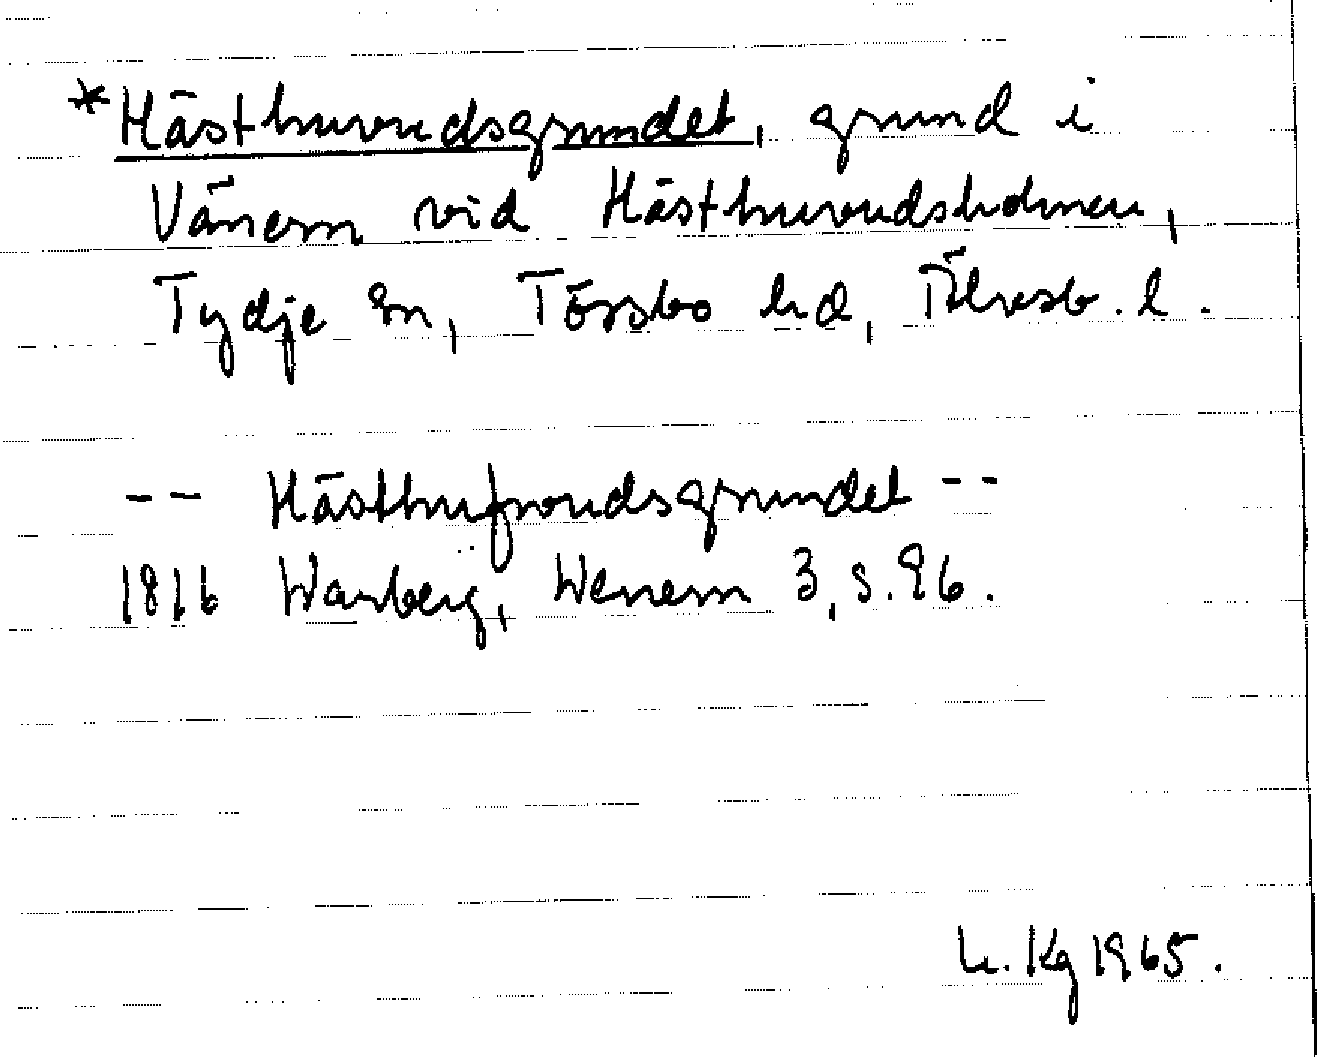 *Hästhuvudsgrundet, grund i
Vänern vid Hästhuvudsholmen,
Tydje sn, Tössbo hd, Älvsb. l.
-- Hästhufvudsgrundet --
1816 Warberg, Wenern 3, s. 96.
L. Kg 1965.